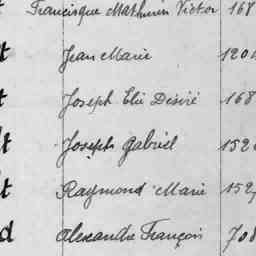 Francisque Mathurin Victor 168
Jean Marie 120
Joseph Elie Désiré 168
Joseph Gabriel 152
Raymond Marie 152
d Alexandre François 708